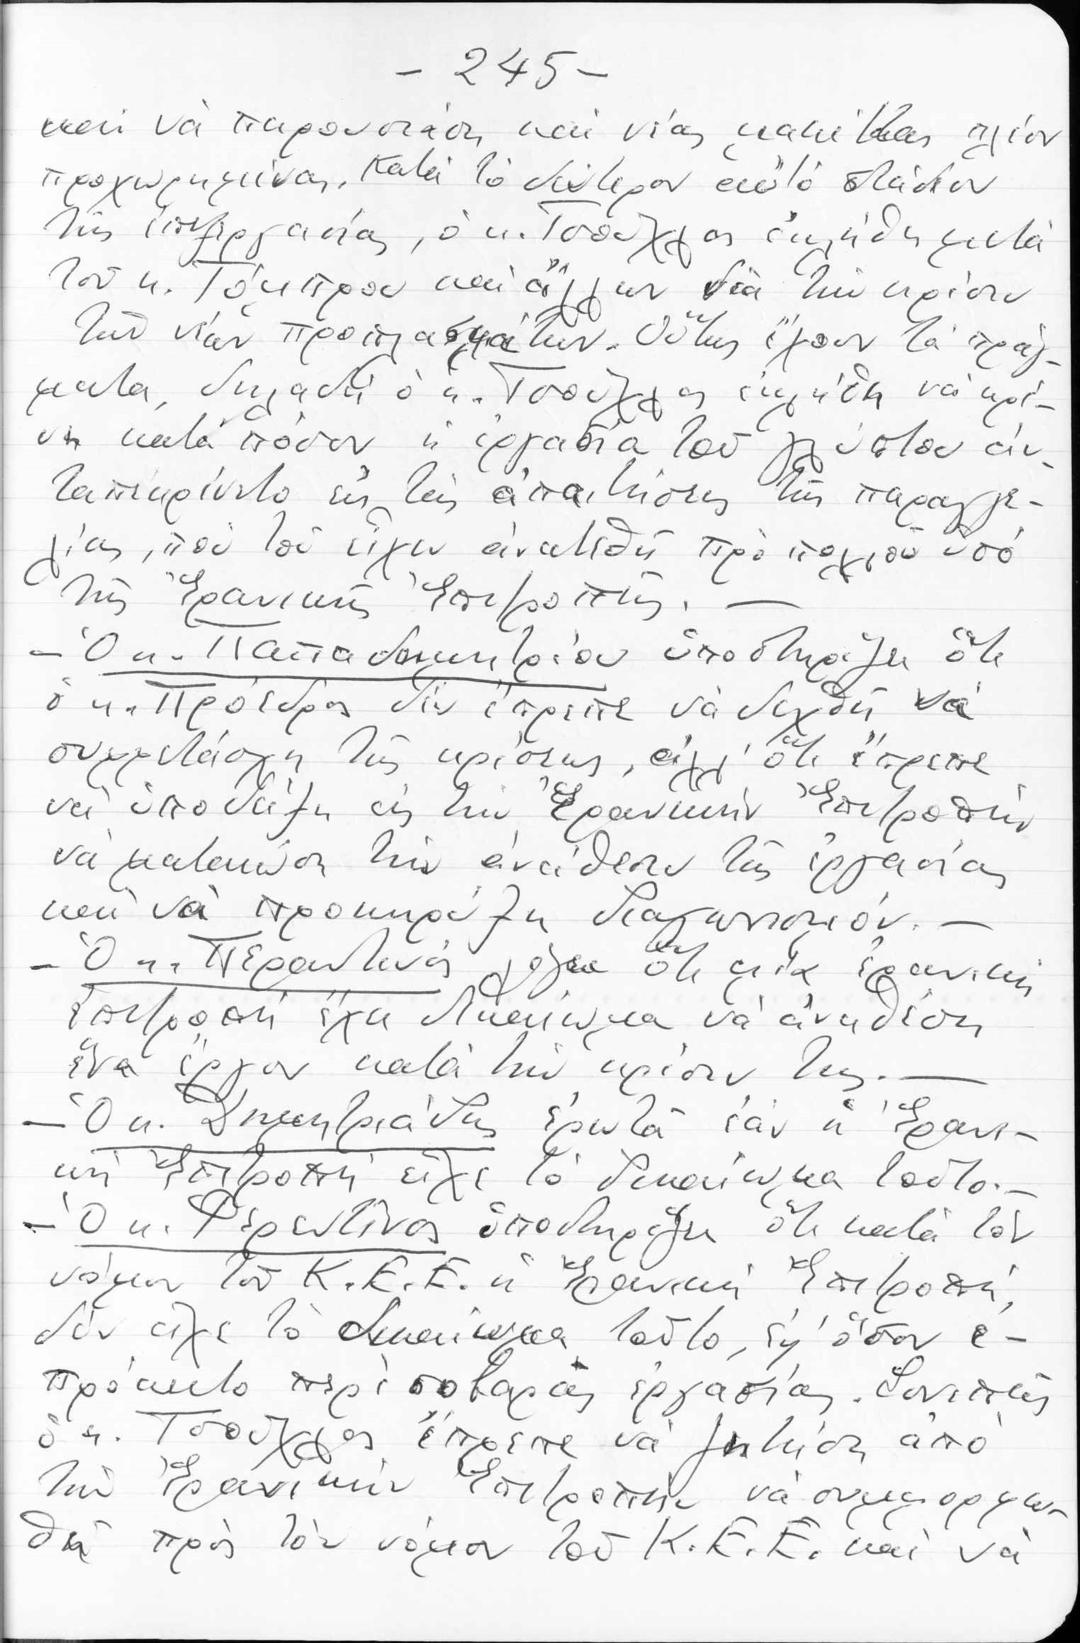 - 245 -
καὶ νὰ παρουσιάσῃ καὶ νέας μακέττας πλέον
προχωρημένας. Κατὰ τὸ δεύτερον αὐτὸ στάδιον
τῆς ἐπεξεργασίας, ὁ κ. Τσοῦχλος ἐκλήθη μετὰ
τοῦ κ. Τόμπρου καὶ ἄλλων διὰ τὴν κρίσιν
τῶν νέων προπλασμάτων. Οὕτως ἔχουν τὰ πράγ-
ματα, δηλαδὴ ὁ κ. Τσοῦχλος ἐκλήθη νὰ κρί-
νῃ κατὰ πόσον ἡ ἐργασία τοῦ γλύπτου ἀν-
ταπεκρίνετο εἰς τὰς ἀπαιτήσεις τῆς παραγγε-
λίας, ποὺ τοῦ εἶχεν ἀνατεθῆ πρὸ πολλοῦ ὑπὸ
τῆς Ἐρανικῆς Ἐπιτροπῆς. —
- Ὁ κ. Παπαδημητρίου ὑποστηρίζει ὅτι
ὁ κ. Πρόεδρος δὲν ἔπρεπε νὰ δεχθῆ νὰ
συμμετάσχῃ τῆς κρίσεως, ἀλλ' ὅτι ἔπρεπε
νὰ ὑποδείξῃ εἰς τὴν Ἐρανικὴν Ἐπιτροπὴν
νὰ ματαιώσῃ τὴν ἀνάθεσιν τῆς ἐργασίας
καὶ νὰ προκηρύξῃ διαγωνισμόν. —
- Ὁ κ. Περαντινός λέγει ὅτι μία ἐρανικὴ
ἐπιτροπὴ ἔχει δικαίωμα νὰ ἀναθέσῃ
ἕνα ἔργον κατὰ τὴν κρίσιν της. —
- Ὁ κ. Δημητριάδης ἐρωτᾶ ἐὰν ἡ Ἐρανι-
κὴ Ἐπιτροπὴ εἶχε τὸ δικαίωμα τοῦτο. —
- Ὁ κ. Φερεντῖνος ὑποστηρίζει ὅτι κατὰ τὸν
νόμον τοῦ Κ.Ε.Ε. ἡ Ἐρανικὴ Ἐπιτροπή,
δὲν εἶχε τὸ δικαίωμα τοῦτο, ἐφ' ὅσον ἐ-
πρόκειτο περὶ σοβαρᾶς ἐργασίας. Συνεπῶς
ὁ κ. Τσοῦχλος ἔπρεπε νὰ ζητήσῃ ἀπὸ
τὴν Ἐρανικὴν Ἐπιτροπὴν νὰ συμμορφω-
θῆ πρὸς τὸν νόμον τοῦ Κ.Ε.Ε. καὶ νὰ